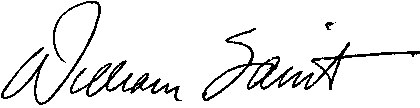 William Saint